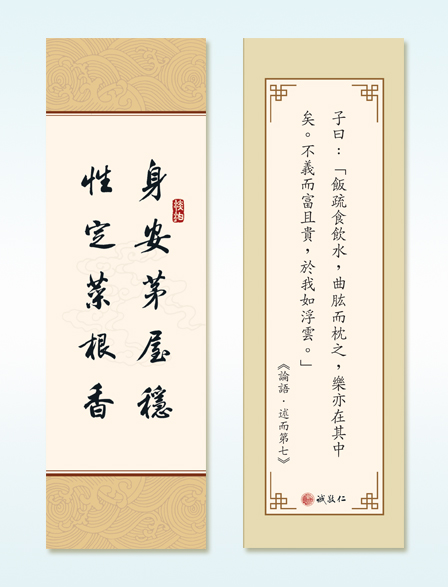 身安茅屋穩
性定菜根香
子曰：「飯疏食飲水，曲肱而枕之，樂亦在其中
矣。不義而富且貴，於我如浮雲。」
《論語．述而第七》
誠敬仁